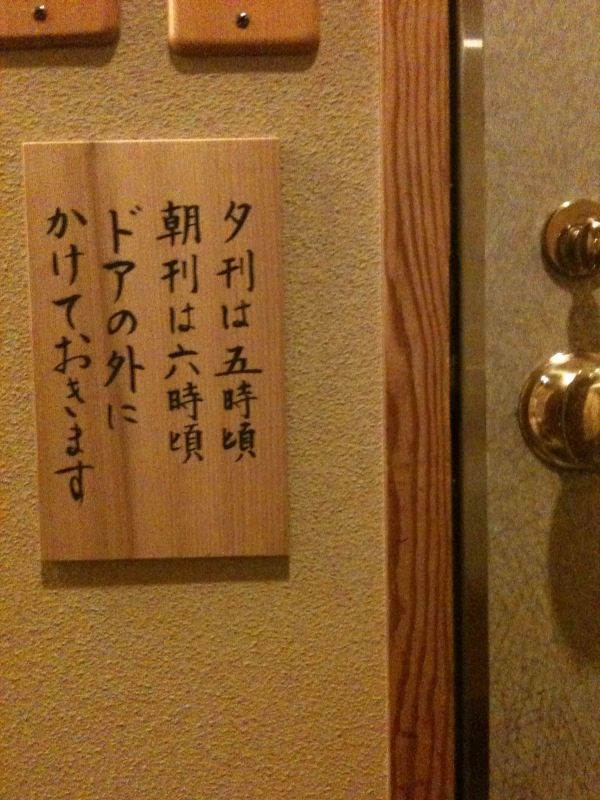 夕刊は五時頃
朝刊は六時頃
ドアの外に
かけておきます